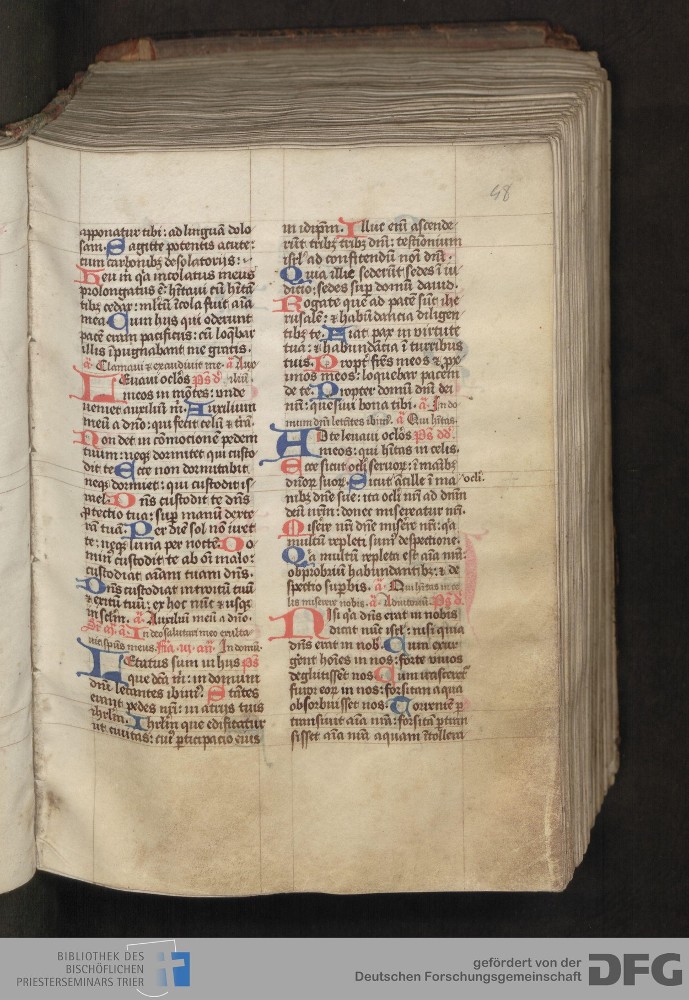 48
apponatur tibi: ad linguā dolo
sam. Sagitte potentis acute:
cum carbonibꝫ desolatoriis:
Heu m̄ qa incolatus meus
prolongatus ē: hītaui cū hītā
tibꝫ cedar: mltū īcola fuit aīa
mea Cum hiis qui oderunt
pacē eram pacificus: cū loqbar
illis īpugnabant me gratis.
Clamaui & exaudiuit me. a̅
Leuaui oclōs Ps d
meos in mōtes: unde
ueniet auxiliū m̄. Auxilium
meū a dn̄o: qui fecit celū & trā.
Non det in cōmocionē pedem
tuum: neqꝫ dormitet qui custo
dit te Ecce non dormitabit
neqꝫ dormiet: qui custodit is
rael Dn̄s custodit te dn̄s
ꝓtectio tua: sup manū dexte
rā tuā. Per diē sol nō uret
te: neqꝫ luna per noctē. Do
minꝰ custodit te ab oī malo:
custodiat aīam tuam dn̄s.
Dn̄s custodiat introitū tuū
& exitū tuū: ex hoc nūc & usqꝫ
in sclm̄. a̅ Auxiliū meū a dn̄o.
In deo salutari meo exulta
uit spūs meus. In domū.
Letatus sum in hiis Ps
que dcā m̄: in domum
dn̄i letantes ibimꝰ. Stātes
erant pedes nr̄i: in atriis tuis
ihrlm̄. Ihrlm̄ que edificatur
ut ciuitas: cuiꝰ ꝑticipacio eius
in idip̄m. Illuc em̄ ascende
rūt tribꝫ tribꝫ dn̄i: testionium
isrl̄ ad confitendū nōi dn̄i.
Quia illic sederūt sedes ī iu
dicio: sedes sup domū dauid.
Rogate que ad pacē sūt ihe
rusalē: & habūdancia diligen
tibꝫ te. Fiat pax in virtute
tua: & habūdācia ī turribus
tuis. Propt fr̄es meos & ꝓx
imos meos: loquebar pacem
de te. Propter domū dn̄i dei
nr̄i: quesiui bona tibi. a̅ In do
mum dn̄i letātes ibimꝰ. a̅ Qui hītas.
Ad te leuaui oclōs Ps dd
meos: qui hītas in celis.
Ecce sicut oclī seruorꝝ: ī manibꝫ
dn̄orꝝ suorꝝ. Sicut ācille ī ma oclī.
nibꝫ dn̄e sue: ita oclī nr̄i ad dn̄m
deū nr̄m: donec misereatur nr̄i.
Misere nr̄i dn̄e misere nr̄i: qa
multū repleti sumꝰ despectione.
Qa multū repleta est aīa nr̄a:
obprobriū habundantibꝫ: & de
spectio supbis. a̅ Qui hītas in ce
lis miserere nobis. a̅ Adiutoriū. Ps d
Nisi qa dn̄s erat in nobis
dicat nūc isrl̄: nisi quia
dn̄s erat in nob. Cum exur
gent hoīes in nos: forte viuos
degluissēt nos Cum irascereꞇ
furor eoꝝ in nos: forsitan aqua
obsorbuisset nos. Torrentē ꝑ
transiuit aīa nr̄a: forsitā ꝑtran
sisset aīa nr̄a aquam ītollera
BIBLIOTHEK DES
BISCHÖFLICHEN
PRIESTERSEMINARS TRIER
gefördert von der
Deutschen Forschungsgemeinschaft
DFG